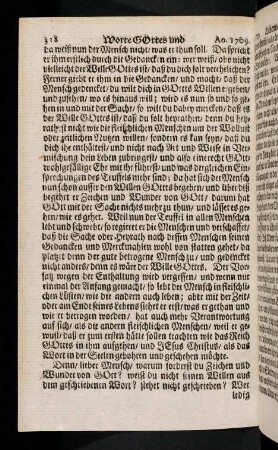 318 Worte GOttes und Ao. 1769.
da weiß nun der Mensch nicht, was er thun soll. Da spricht
er ihm erstlich durch die Gedancken ein: wer weiß, ob nicht
vielleicht der Wille GOttes ist, daß du dich solt verehelichen?
Ferner giebt er ihm in die Gedancken, und macht, daß der
Mensch gedencket, du wilt dich in GOttes Willen ergeben,
und zusehen, wo es hinaus will; wird es nun so und so gehen
in und mit der Sache, so will ich gedencken, denn, daß es
der Wille GOttes ist, daß du solt heyrathen, denn du hey-
rathest ja nicht wie die fleischlichen Menschen um der Wollust
oder zeitlichen Nutzen willen, sondern es kan seyn, daß du
dich ihr enthältest, und nicht nach Art und Weise in Ver-
mischung dein Leben zubringest, und also einerecht GOtt-
wohlgefällige Ehe mit ihr führest, und was dergleichen Ein-
sprechungen des Teuffels mehr sind; da hat sich der Mensch
nun schon ausser den Willen GOttes begeben, und über diß
begehrt er Zeichen und Wunder von GOtt, darum hat
GOtt mit der Sache nichts mehr zu thun, und lässet es ge-
hen, wie es gehet. Weil nun der Teuffel in allen Menschen
lebt und schwebt, so regieret er die Menschen und verschaffet,
daß die Sache oder Heyrath nach dessen Menschen seinen
Gedancken und Merckmahlen wohl von statten gehet, da
platzt denn der gute betrogene Mensch zu, und gedencket
nicht anders, denn es wäre der Wille GOttes. Der Vor-
satz wegen der Enthaltung wird vergessen, und wenn nur
einmal der Anfang gemacht, so lebt der Mensch in fleischli-
chen Lüsten, wie die andern auch leben; aber mit der Zeit,
oder am Ende seines Lebens siehet er erst, was er gethan und
wie er betrogen worden, hat auch mehr Verantwortung
auf sich, als die andern fleischlichen Menschen, weil er ge-
wust, daß er zum ersten hätte sollen trachten wie das Reich
GOttes in ihm aufgehen, und JEsus Christus, als das
Wort in der Seelen gebohren und geschehen möchte.
Denn, lieber Mensch, warum forderst du Zeichen und
Wunder von GOtt? weist du nicht seinen Willen aus
dem geschriebenen Wort? stehet nicht geschrieben? Wer
ledig